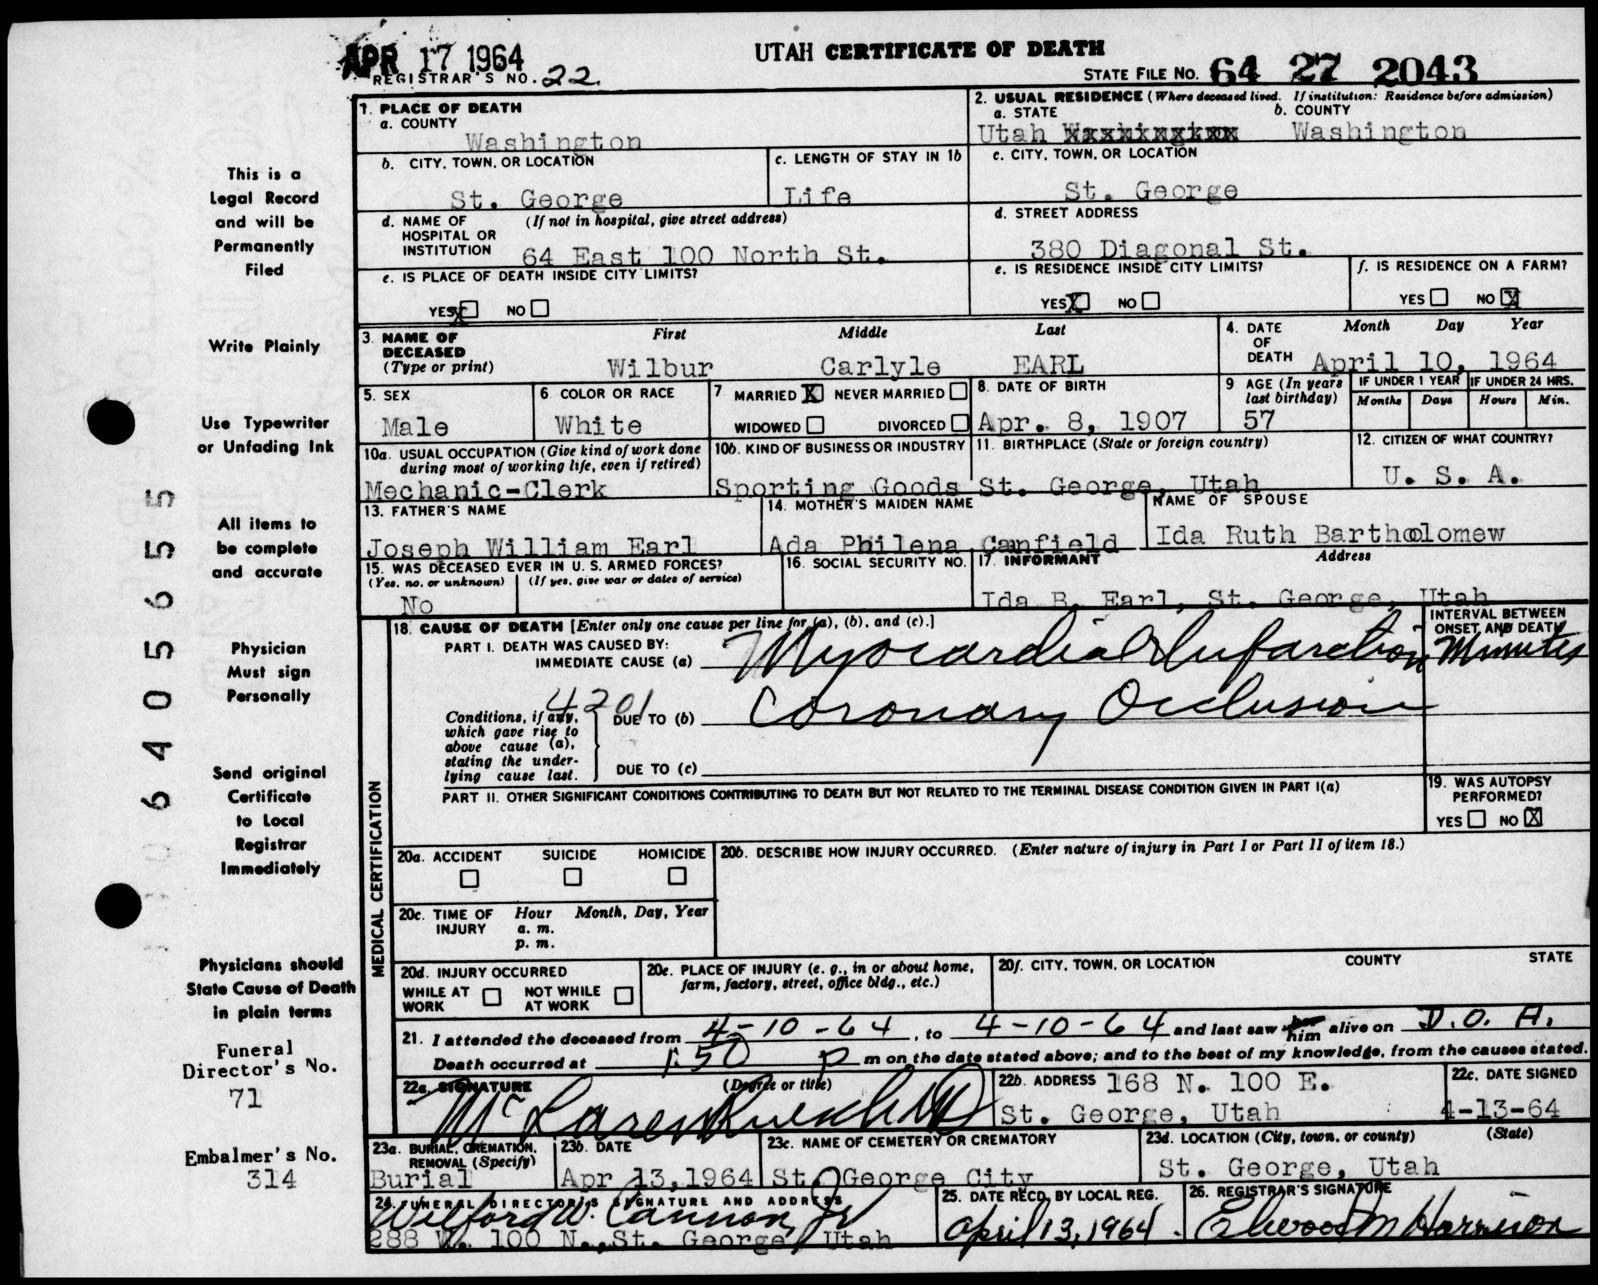 APR 17 1964
UTAH CERTIFICATE OF DEATH
REGISTRAR'S NO. 22
STATE FILE NO. 64 27 2043
1. PLACE OF DEATH
a. COUNTY
Washington
2. USUAL RESIDENCE (Where deceased lived. If institution: Residence before admission)
a. STATE b. COUNTY
Utah Washington
b. CITY, TOWN, OR LOCATION
St. George
c. LENGTH OF STAY IN 1b
Life
c. CITY, TOWN, OR LOCATION
St. George
d. NAME OF HOSPITAL OR INSTITUTION (If not in hospital, give street address)
64 East 100 North St.
d. STREET ADDRESS
380 Diagonal St.
e. IS PLACE OF DEATH INSIDE CITY LIMITS?
YES X NO
e. IS RESIDENCE INSIDE CITY LIMITS?
YES X NO
f. IS RESIDENCE ON A FARM?
YES NO X
3. NAME OF DECEASED (Type or print)
First Middle Last
Wilbur Carlyle EARL
4. DATE OF DEATH Month Day Year
April 10, 1964
5. SEX
Male
6 COLOR OR RACE
White
7 MARRIED X NEVER MARRIED
WIDOWED DIVORCED
8. DATE OF BIRTH
Apr. 8, 1907
9 AGE (In years last birthday)
57
IF UNDER 1 YEAR
Months Days
IF UNDER 24 HRS.
Hours Min.
10a. USUAL OCCUPATION (Give kind of work done during most of working life, even if retired)
Mechanic-Clerk
10b. KIND OF BUSINESS OR INDUSTRY
Sporting Goods
11. BIRTHPLACE (State or foreign country)
St. George, Utah
12. CITIZEN OF WHAT COUNTRY?
U. S. A.
13. FATHER'S NAME
Joseph William Earl
14. MOTHER'S MAIDEN NAME
Ada Philena Canfield
NAME OF SPOUSE
Ida Ruth Bartholomew
15. WAS DECEASED EVER IN U. S. ARMED FORCES?
(Yes, no, or unknown) (If yes, give war or dates of service)
No
16. SOCIAL SECURITY NO.
17. INFORMANT Address
Ida B. Earl, St. George, Utah
MEDICAL CERTIFICATION
18. CAUSE OF DEATH [Enter only one cause per line for (a), (b), and (c).]
INTERVAL BETWEEN ONSET AND DEATH
PART I. DEATH WAS CAUSED BY:
IMMEDIATE CAUSE (a) Myocardial Infarction Minutes
4201
Conditions, if any, which gave rise to above cause (a), stating the underlying cause last.
DUE TO (b) Coronary Occlusion
DUE TO (c)
PART II. OTHER SIGNIFICANT CONDITIONS CONTRIBUTING TO DEATH BUT NOT RELATED TO THE TERMINAL DISEASE CONDITION GIVEN IN PART I(a)
19. WAS AUTOPSY PERFORMED?
YES NO X
20a. ACCIDENT SUICIDE HOMICIDE
20b. DESCRIBE HOW INJURY OCCURRED. (Enter nature of injury in Part I or Part II of item 18.)
20c. TIME OF INJURY Hour Month, Day, Year
a. m.
p. m.
20d. INJURY OCCURRED
WHILE AT WORK NOT WHILE AT WORK
20e. PLACE OF INJURY (e. g., in or about home, farm, factory, street, office bldg., etc.)
20f. CITY, TOWN, OR LOCATION COUNTY STATE
21. I attended the deceased from 4-10-64, to 4-10-64 and last saw her him alive on D.O.A.
Death occurred at 1:50 p m on the date stated above; and to the best of my knowledge, from the causes stated.
22a. SIGNATURE (Degree or title)
22b. ADDRESS 168 N. 100 E.
St. George, Utah
22c. DATE SIGNED
4-13-64
23a. BURIAL, CREMATION, REMOVAL (Specify)
Burial
23b. DATE
Apr 13, 1964
23c. NAME OF CEMETERY OR CREMATORY
St. George City
23d. LOCATION (City, town, or county) (State)
St. George, Utah
24. FUNERAL DIRECTOR'S SIGNATURE AND ADDRESS
Wilford W. Cannon, Jr
288 W. 100 N., St. George, Utah
25. DATE RECD. BY LOCAL REG.
April 13, 1964.
26. REGISTRAR'S SIGNATURE
Elwood M Harrison
This is a
Legal Record
and will be
Permanently
Filed
Write Plainly
Use Typewriter
or Unfading Ink
All items to
be complete
and accurate
Physician
Must sign
Personally
Send original
Certificate
to Local
Registrar
Immediately
Physicians should
State Cause of Death
in plain terms
Funeral
Director's No.
71
Embalmer's No.
314
640565 55